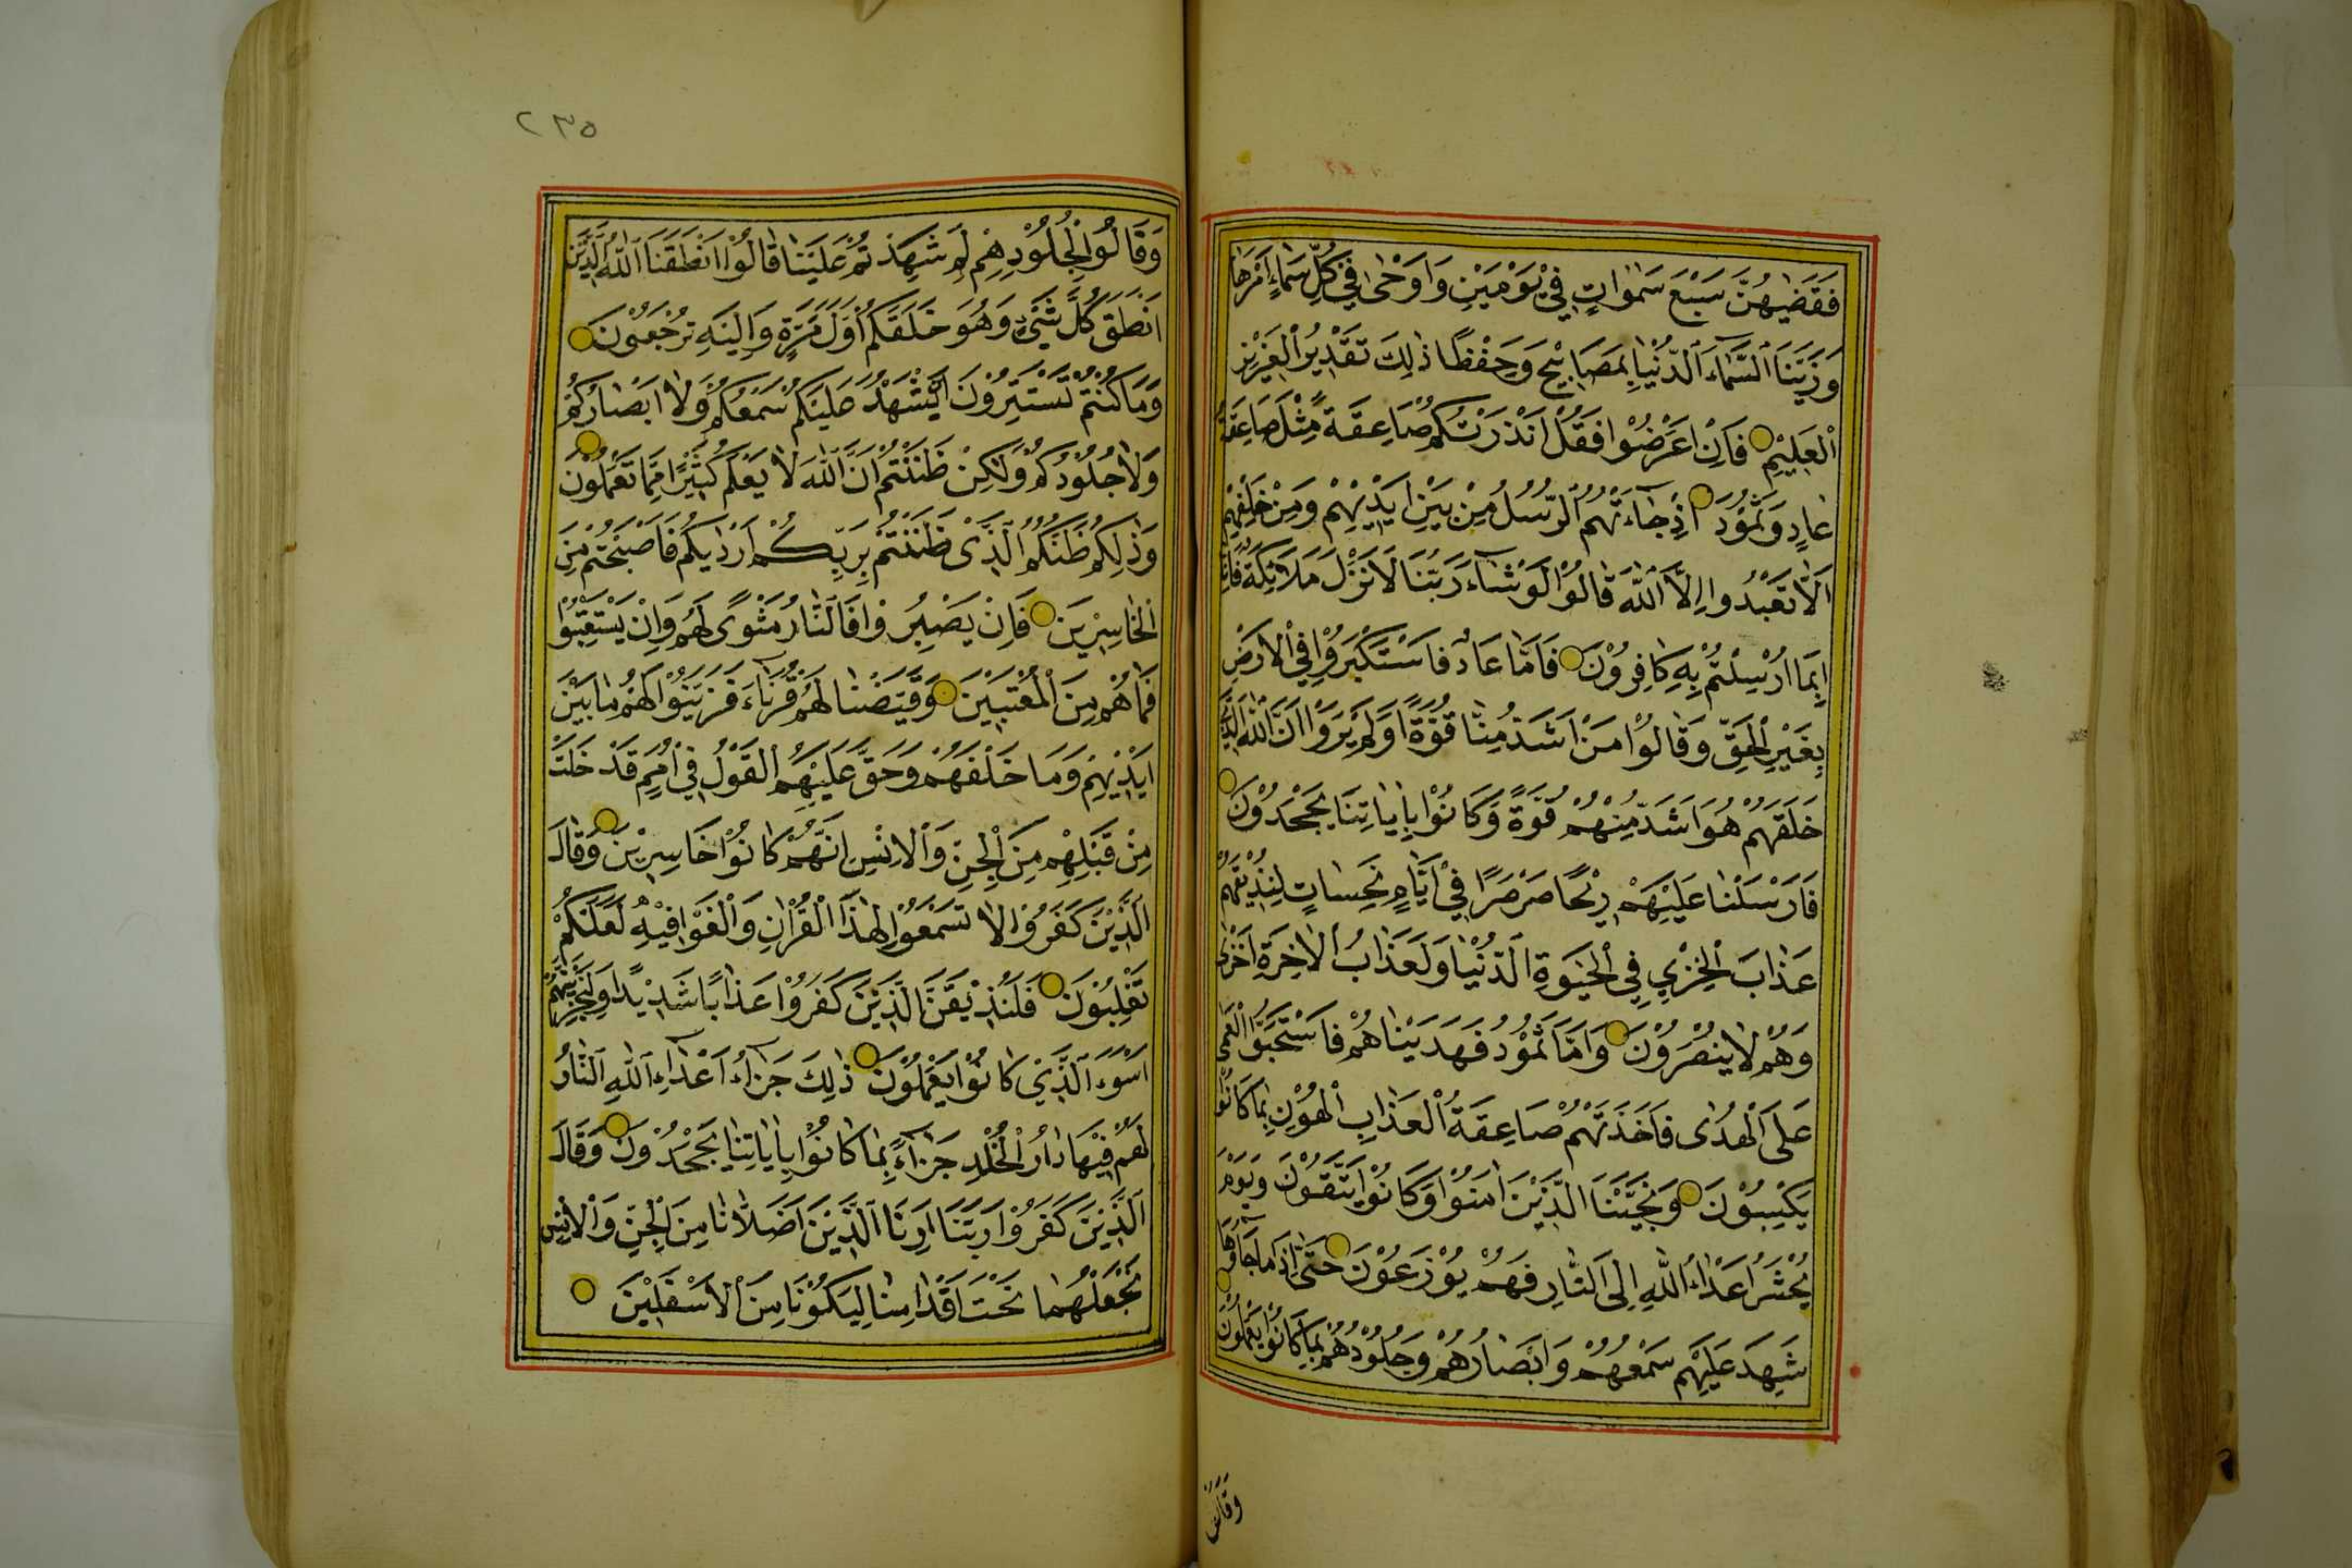 فَقَضٰیهُنَّ سَبْعَ سَمٰوَاتٍ فِيْ يَوْمَيْنِ وَاَوْحٰى فِيْ كُلِّ سَمَاءٍ اَمْرَهَا
وَزَيَّنَّا السَّمَاءَ الدُّنْيَا بِمَصَابِيْحَ وَحِفْظًا ذٰلِكَ تَقْدِيْرُ الْعَزِيْزِ
الْعَلِيْمِ فَاِنْ اَعْرَضُوْا فَقُلْ اَنْذَرْتُكُمْ صَاعِقَةً مِثْلَ صَاعِقَةِ
عَادٍ وَثَمُوْدَ اِذْ جَاءَتْهُمُ الرُّسُلُ مِنْ بَيْنِ اَيْدِيْهِمْ وَمِنْ خَلْفِهِمْ
اَلَّا تَعْبُدُوا اِلَّا اللّٰهَ قَالُوْا لَوْ شَاءَ رَبُّنَا لَاَنْزَلَ مَلَائِكَةً فَاِنَّا
بِمَا اُرْسِلْتُمْ بِهِ كَافِرُوْنَ فَاَمَّا عَادٌ فَاسْتَكْبَرُوْا فِي الْاَرْضِ
بِغَيْرِ الْحَقِّ وَقَالُوْا مَنْ اَشَدُّ مِنَّا قُوَّةً اَوَلَمْ يَرَوْا اَنَّ اللّٰهَ الَّذِيْ
خَلَقَهُمْ هُوَ اَشَدُّ مِنْهُمْ قُوَّةً وَكَانُوْا بِاٰيَاتِنَا يَجْحَدُوْنَ
فَاَرْسَلْنَا عَلَيْهِمْ رِيْحًا صَرْصَرًا فِيْ اَيَّامٍ نَحِسَاتٍ لِنُذِيْقَهُمْ
عَذَابَ الْخِزْيِ فِي الْحَيٰوةِ الدُّنْيَا وَلَعَذَابُ الْاٰخِرَةِ اَخْزٰى
وَهُمْ لَا يُنْصَرُوْنَ وَاَمَّا ثَمُوْدُ فَهَدَيْنَاهُمْ فَاسْتَحَبُّوا الْعَمٰى
عَلَى الْهُدٰى فَاَخَذَتْهُمْ صَاعِقَةُ الْعَذَابِ الْهُوْنِ بِمَا كَانُوْا
يَكْسِبُوْنَ وَنَجَّيْنَا الَّذِيْنَ اٰمَنُوْا وَكَانُوْا يَتَّقُوْنَ وَيَوْمَ
يُحْشَرُ اَعْدَاءُ اللّٰهِ اِلَى النَّارِ فَهُمْ يُوْزَعُوْنَ حَتّٰى اِذَا مَا جَاؤُهَا
شَهِدَ عَلَيْهِمْ سَمْعُهُمْ وَاَبْصَارُهُمْ وَجُلُوْدُهُمْ بِمَا كَانُوْا يَعْمَلُوْنَ
وَقَالُوا
٢٣٥
وَقَالُوْا لِجُلُوْدِهِمْ لِمَ شَهِدْتُمْ عَلَيْنَا قَالُوْا اَنْطَقَنَا اللّٰهُ الَّذِيْ
اَنْطَقَ كُلَّ شَيْءٍ وَهُوَ خَلَقَكُمْ اَوَّلَ مَرَّةٍ وَاِلَيْهِ تُرْجَعُوْنَ
وَمَا كُنْتُمْ تَسْتَتِرُوْنَ اَنْ يَشْهَدَ عَلَيْكُمْ سَمْعُكُمْ وَلَا اَبْصَارُكُمْ
وَلَا جُلُوْدُكُمْ وَلٰكِنْ ظَنَنْتُمْ اَنَّ اللّٰهَ لَا يَعْلَمُ كَثِيْرًا مِمَّا تَعْمَلُوْنَ
وَذٰلِكُمْ ظَنُّكُمُ الَّذِيْ ظَنَنْتُمْ بِرَبِّكُمْ اَرْدٰيكُمْ فَاَصْبَحْتُمْ مِنَ
الْخَاسِرِيْنَ فَاِنْ يَصْبِرُوْا فَالنَّارُ مَثْوًى لَهُمْ وَاِنْ يَسْتَعْتِبُوْا
فَمَا هُمْ مِنَ الْمُعْتَبِيْنَ وَقَيَّضْنَا لَهُمْ قُرَنَاءَ فَزَيَّنُوْا لَهُمْ مَا بَيْنَ
اَيْدِيْهِمْ وَمَا خَلْفَهُمْ وَحَقَّ عَلَيْهِمُ الْقَوْلُ فِيْ اُمَمٍ قَدْ خَلَتْ
مِنْ قَبْلِهِمْ مِنَ الْجِنِّ وَالْاِنْسِ اِنَّهُمْ كَانُوْا خَاسِرِيْنَ وَقَالَ
الَّذِيْنَ كَفَرُوْا لَا تَسْمَعُوْا لِهٰذَا الْقُرْاٰنِ وَالْغَوْا فِيْهِ لَعَلَّكُمْ
تَغْلِبُوْنَ فَلَنُذِيْقَنَّ الَّذِيْنَ كَفَرُوْا عَذَابًا شَدِيْدًا وَلَنَجْزِيَنَّهُمْ
اَسْوَءَ الَّذِيْ كَانُوْا يَعْمَلُوْنَ ذٰلِكَ جَزَاءُ اَعْدَاءِ اللّٰهِ النَّارُ
لَهُمْ فِيْهَا دَارُ الْخُلْدِ جَزَاءً بِمَا كَانُوْا بِاٰيَاتِنَا يَجْحَدُوْنَ وَقَالَ
الَّذِيْنَ كَفَرُوْا رَبَّنَا اَرِنَا الَّذَيْنِ اَضَلَّانَا مِنَ الْجِنِّ وَالْاِنْسِ
نَجْعَلْهُمَا تَحْتَ اَقْدَامِنَا لِيَكُوْنَا مِنَ الْاَسْفَلِيْنَ